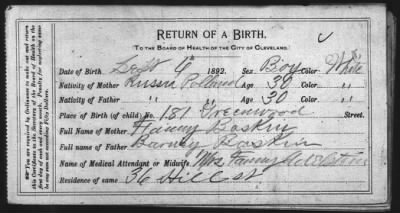 You are required by Ordinance to make out and return
this Certificate to the Secretary of the Board of Health on the
first day of each and every week. Penalty for neglecting same
any sum not exceeding Fifty Dollars.
RETURN OF A BIRTH.
TO THE BOARD OF HEALTH OF THE CITY OF CLEVELAND.
Date of Birth Sept 6" 1892. Sex Boy Color White
Nativity of Mother Russia Poland Age 30 Color "
Nativity of Father " " Age 30 Color "
Place of Birth (of child) No. 181 Greenwood Street.
Full Name of Mother Fanny Baskin
Full name of Father Barney Baskin
Name of Medical Attendant or Midwife Mrs Fanny
Residence of same 36 Hill st